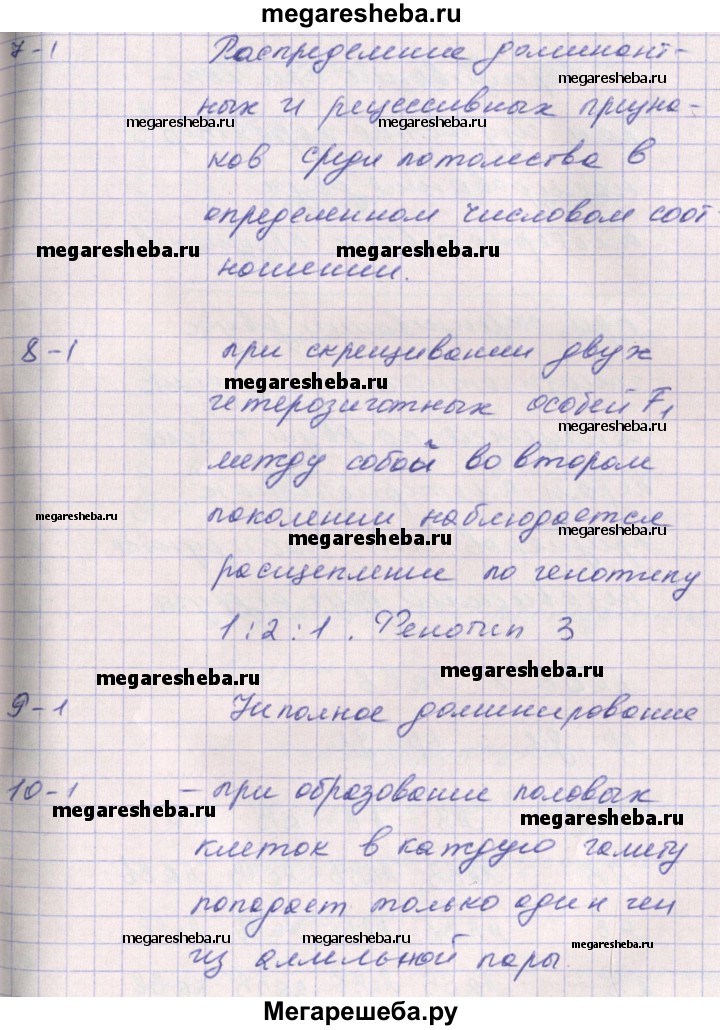 megaresheba.ru
7-1 Распределение доминант-
megaresheba.ru
ных и рецессивных призна-
megaresheba.ru megaresheba.ru
ков среди потомства в
определенном числовом соот
megaresheba.ru megaresheba.ru
ношении.
8-1 при скрещивании двух
megaresheba.ru
гетерозиготных особей F1
megaresheba.ru
между собой во втором
megaresheba.ru
поколении наблюдается
megaresheba.ru megaresheba.ru
расщепление по генотипу
1:2:1. Фенотип 3
megaresheba.ru megaresheba.ru
9-1 Неполное доминирование
10-1 - при образование половых
megaresheba.ru megaresheba.ru
клеток в каждую гамету
попадает только один ген
megaresheba.ru megaresheba.ru megaresheba.ru
из аллельной пары.
Мегарешеба.ру